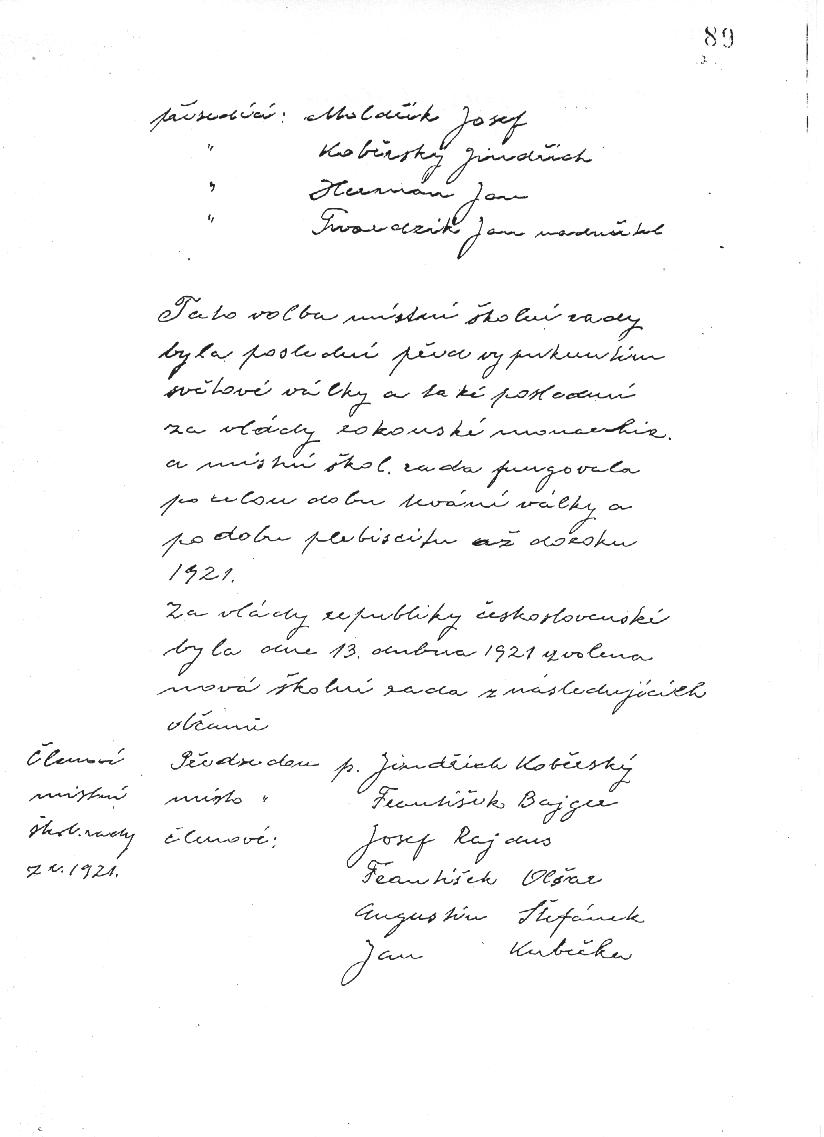 89
přísedící: Moldřík Josef
" Koběrský Jindřich
" Herman Jan
" Tvardzik Jan nadučitel
Tato volba místní školní rady
byla poslední před vypuknutím
světové války a také poslední
za vlády rakouské monarchie.
a místní škol. rada fungovala
po celou dobu trvání války a
po dobu plebiscitu až do roku
1921.
Za vlády republiky československé
byla dne 13. dubna 1921 zvolena
nová školní rada z následujících
občanů
Členové místní škol. rady z r. 1921.
Předsedou p. Jindřich Koběrský
místo " František Bajger
členové: Josef Rajdus
František Olšar
Augustin Štefánek
Jan Kubička